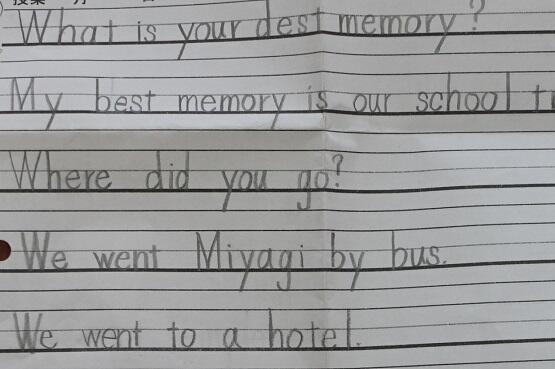 What is your dest memory?
My best memory is our school
Where did you go?
We went Miyagi by bus.
We went to a hotel.